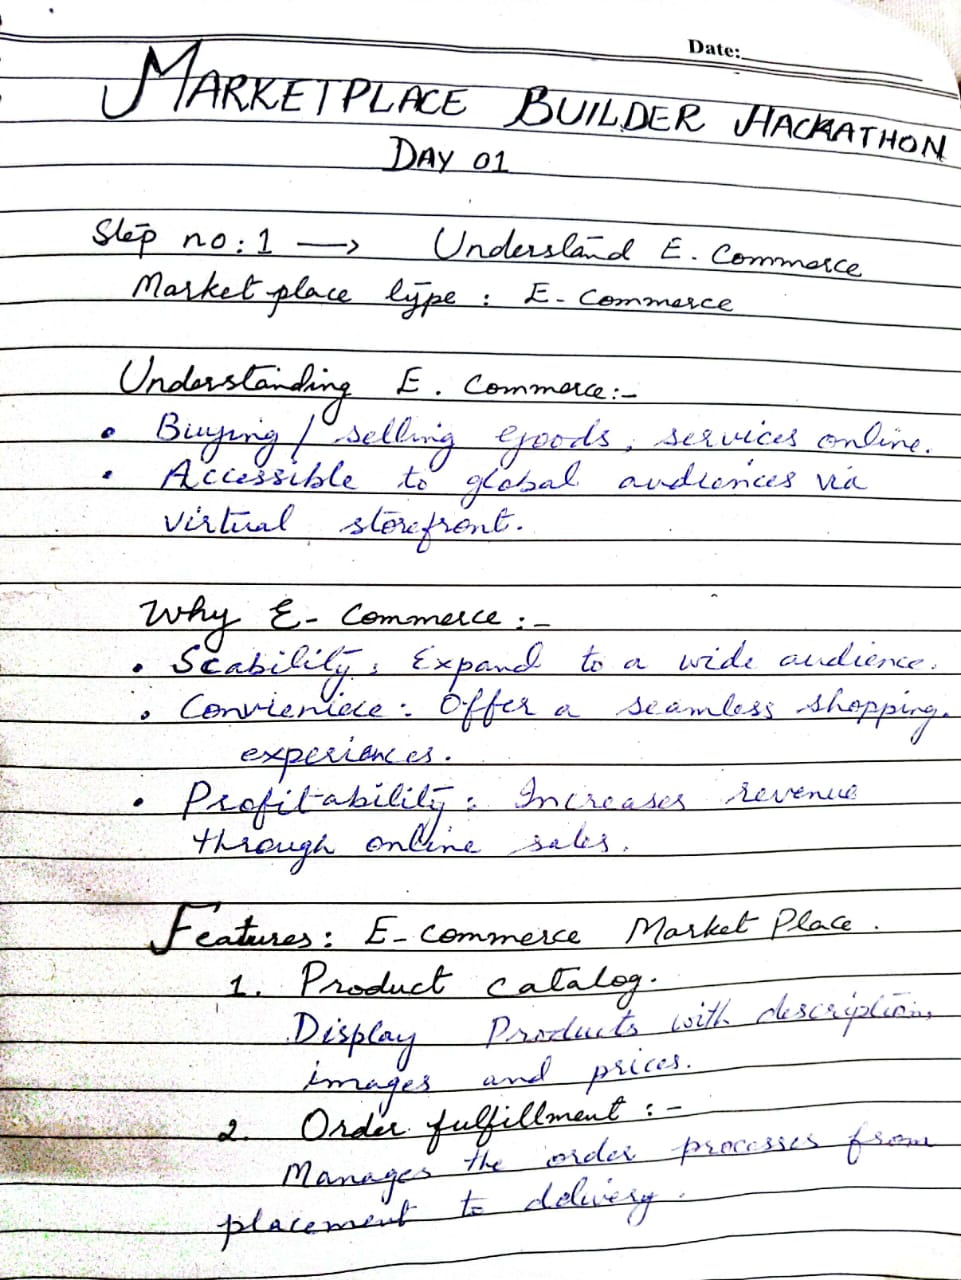 Date:
MARKETPLACE BUILDER HACKATHON
DAY 01
Step no:1 → Understand E. Commerce
Market place type : E-Commerce
Understanding E. Commerce:-
• Buying / selling goods, services online.
• Accessible to global audiences via
virtual storefront.
Why E-Commerce :-
• Scability: Expand to a wide audience.
• Convieniece: Offer a seamless shopping.
experiences.
• Profitability: Increases revenue
through online sales.
Features: E-commerce Market Place.
1. Product catalog.
Display Products with description,
images and prices.
2. Order fulfillment :-
Manages the order processes from
placement to delivery.